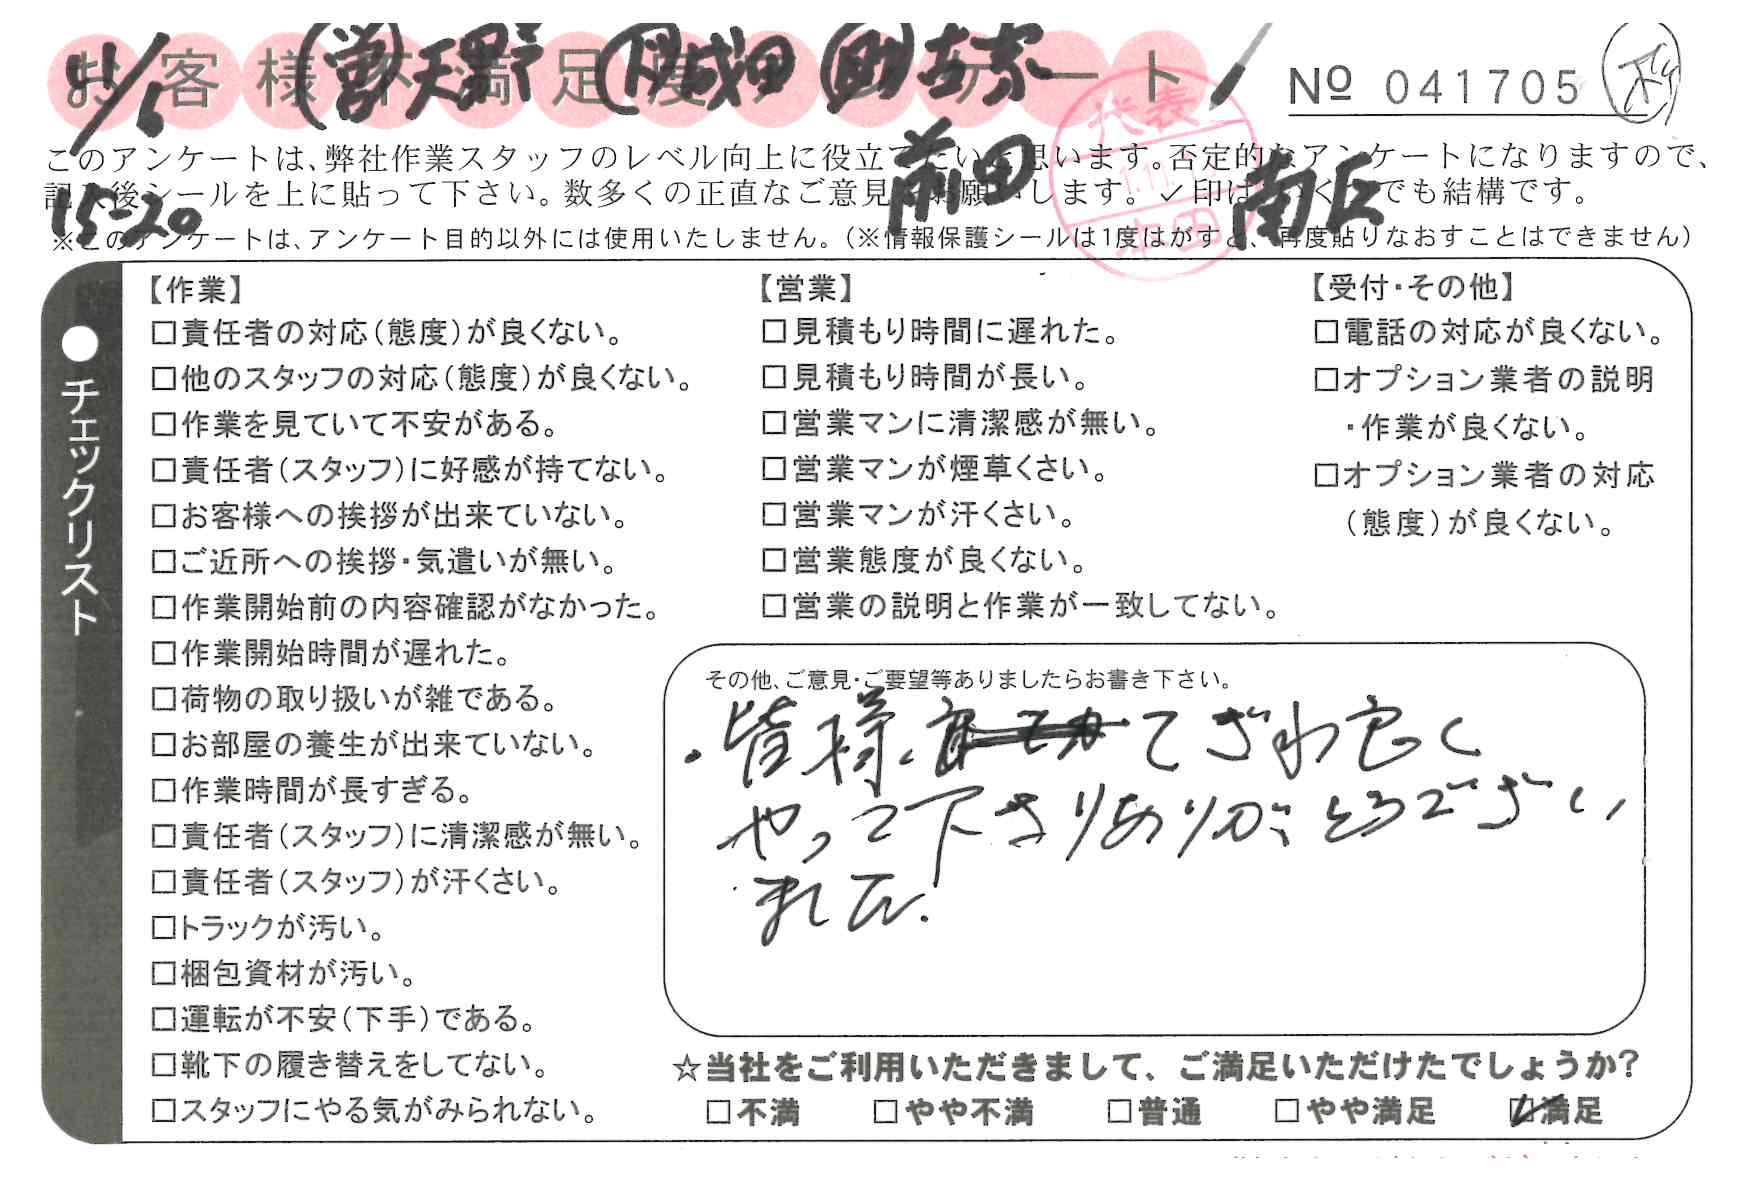 お客様不満足度アンケート
11/6 (営)天野 (下)成田 (助)古家
前田
南区
15-20
No 041705
代表
本田
このアンケートは、弊社作業スタッフのレベル向上に役立てたいと思います。否定的なアンケートになりますので、
記入後シールを上に貼って下さい。数多くの正直なご意見をお願いします。✓印はいくつでも結構です。
※このアンケートは、アンケート目的以外には使用いたしません。(※情報保護シールは1度はがすと、再度貼りなおすことはできません)
●チェックリスト
【作業】
□責任者の対応(態度)が良くない。
□他のスタッフの対応(態度)が良くない。
□作業を見ていて不安がある。
□責任者(スタッフ)に好感が持てない。
□お客様への挨拶が出来ていない。
□ご近所への挨拶・気遣いが無い。
□作業開始前の内容確認がなかった。
□作業開始時間が遅れた。
□荷物の取り扱いが雑である。
□お部屋の養生が出来ていない。
□作業時間が長すぎる。
□責任者(スタッフ)に清潔感が無い。
□責任者(スタッフ)が汗くさい。
□トラックが汚い。
□梱包資材が汚い。
□運転が不安(下手)である。
□靴下の履き替えをしてない。
□スタッフにやる気がみられない。
【営業】
□見積もり時間に遅れた。
□見積もり時間が長い。
□営業マンに清潔感が無い。
□営業マンが煙草くさい。
□営業マンが汗くさい。
□営業態度が良くない。
□営業の説明と作業が一致してない。
【受付・その他】
□電話の対応が良くない。
□オプション業者の説明
・作業が良くない。
□オプション業者の対応
(態度)が良くない。
その他、ご意見・ご要望等ありましたらお書き下さい。
・皆様、てぎわ良く
やって下さりありがとうござい
ました.
☆当社をご利用いただきまして、ご満足いただけたでしょうか?
□不満 □やや不満 □普通 □やや満足 ☑満足